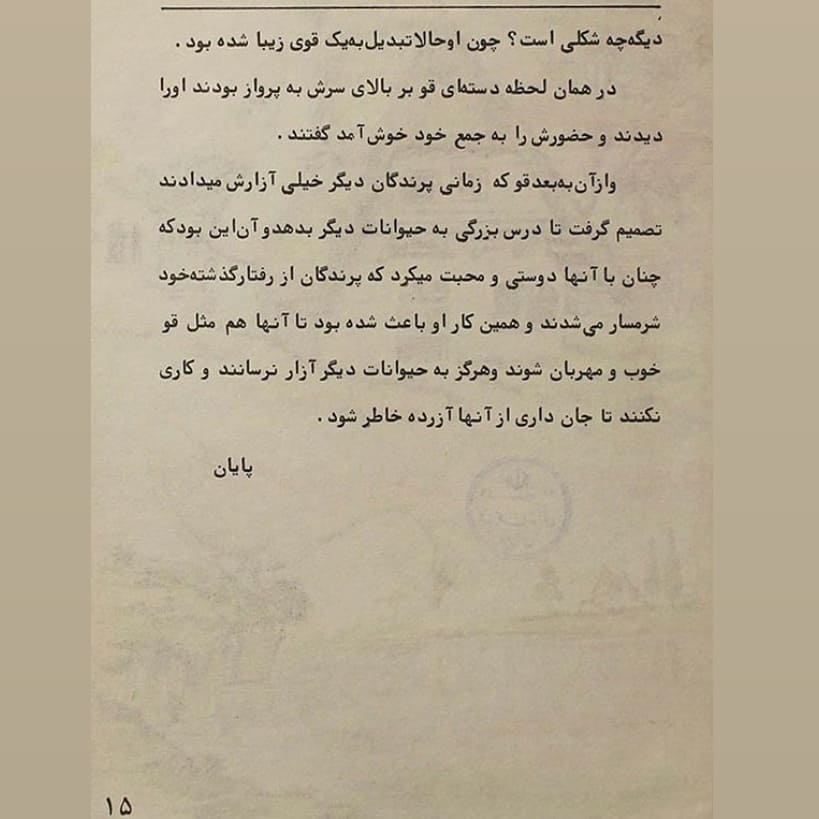 دیگه‌چه شکلی است؟ چون اوحالاتبدیل‌به‌یک قوی زیبا شده بود .
در همان لحظه دسته‌ای قو بر بالای سرش به پرواز بودند اورا
دیدند و حضورش را به جمع خود خوش‌آمد گفتند .
وازآن‌به‌بعدقو که زمانی پرندگان دیگر خیلی آزارش میدادند
تصمیم گرفت تا درس بزرگی به حیوانات دیگر بدهدو آن‌این بودکه
چنان با آنها دوستی و محبت میکرد که پرندگان از رفتارگذشته‌خود
شرمسار می‌شدند و همین کار او باعث شده بود تا آنها هم مثل قو
خوب و مهربان شوند وهرگز به حیوانات دیگر آزار نرسانند و کاری
نکنند تا جان داری از آنها آزرده خاطر شود .
پایان
۱۵